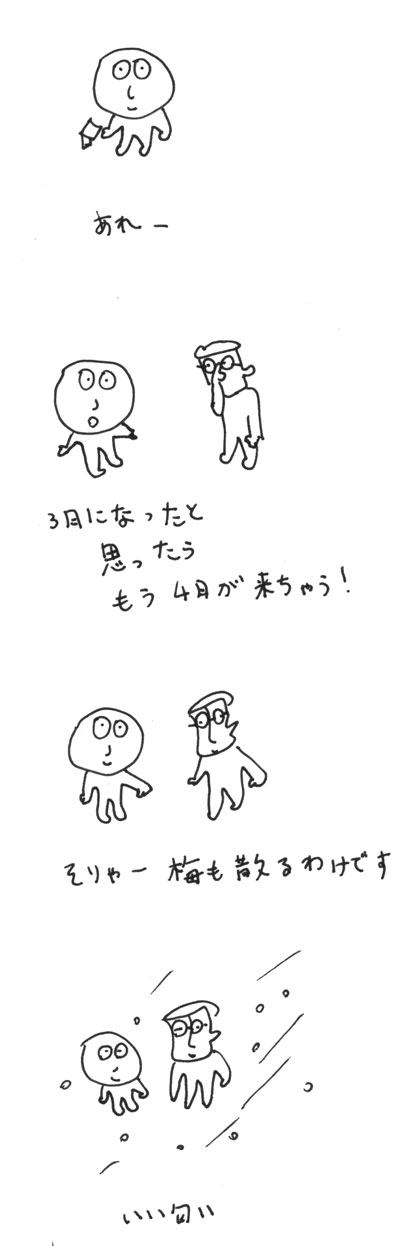 あれー
3月になったと
思ったら
もう4月が来ちゃう!
そりゃー梅も散るわけです
いい匂い